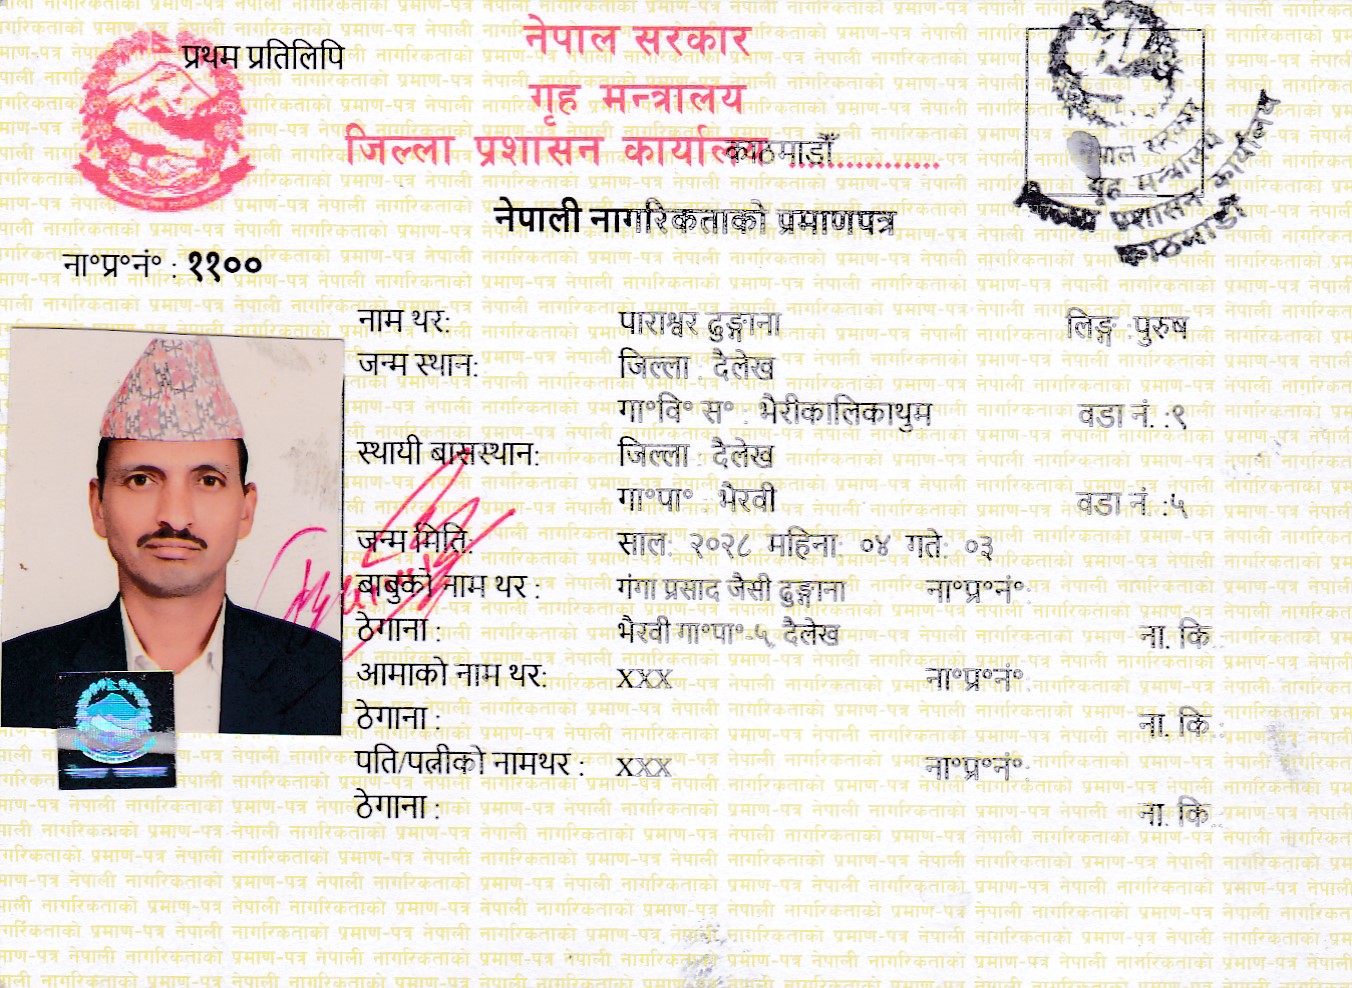 प्रथम प्रतिलिपि
नेपाल सरकार
गृह मन्त्रालय
जिल्ला प्रशासन कार्यालय काठमाडौँ
नेपाल सरकार
गृह मन्त्रालय
जिल्ला प्रशासन कार्यालय
काठमाडौँ
नेपाली नागरिकताको प्रमाणपत्र
ना॰प्र॰नं॰ : ११००
नाम थर: पाराश्वर ढुङ्गाना लिङ्ग :पुरुष
जन्म स्थान: जिल्ला : दैलेख
गा॰वि॰ स॰ : भैरीकालिकाथुम वडा नं. :९
स्थायी बासस्थान: जिल्ला : दैलेख
गा॰पा॰ : भैरवी वडा नं. :५
जन्म मिति: साल: २०२८ महिना: ०४ गते: ०३
बाबुको नाम थर : गंगा प्रसाद जैसी ढुङ्गाना ना॰प्र॰नं॰:
ठेगाना : भैरवी गा॰पा॰-५, दैलेख ना. कि.:
आमाको नाम थर: xxx ना॰प्र॰नं॰:
ठेगाना : ना. कि.:
पति/पत्नीको नामथर : xxx ना॰प्र॰नं॰:
ठेगाना : ना. कि.: